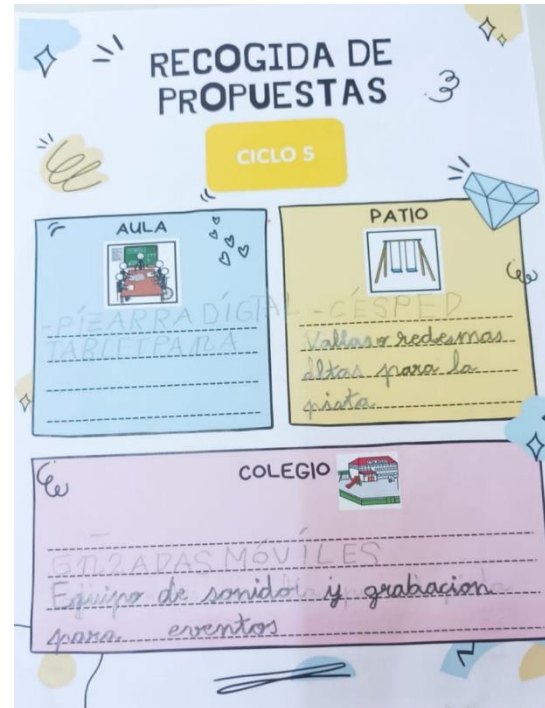 RECOGIDA DE
PROPUESTAS
CICLO 5
AULA
-PIEARRA DIGITAL
TABLET PARA
PATIO
-CÉSPED
Vallas o redes mas
altas para la
pista
COLEGIO
MÓVILES
Equipo de sonido y grabacion
para eventos